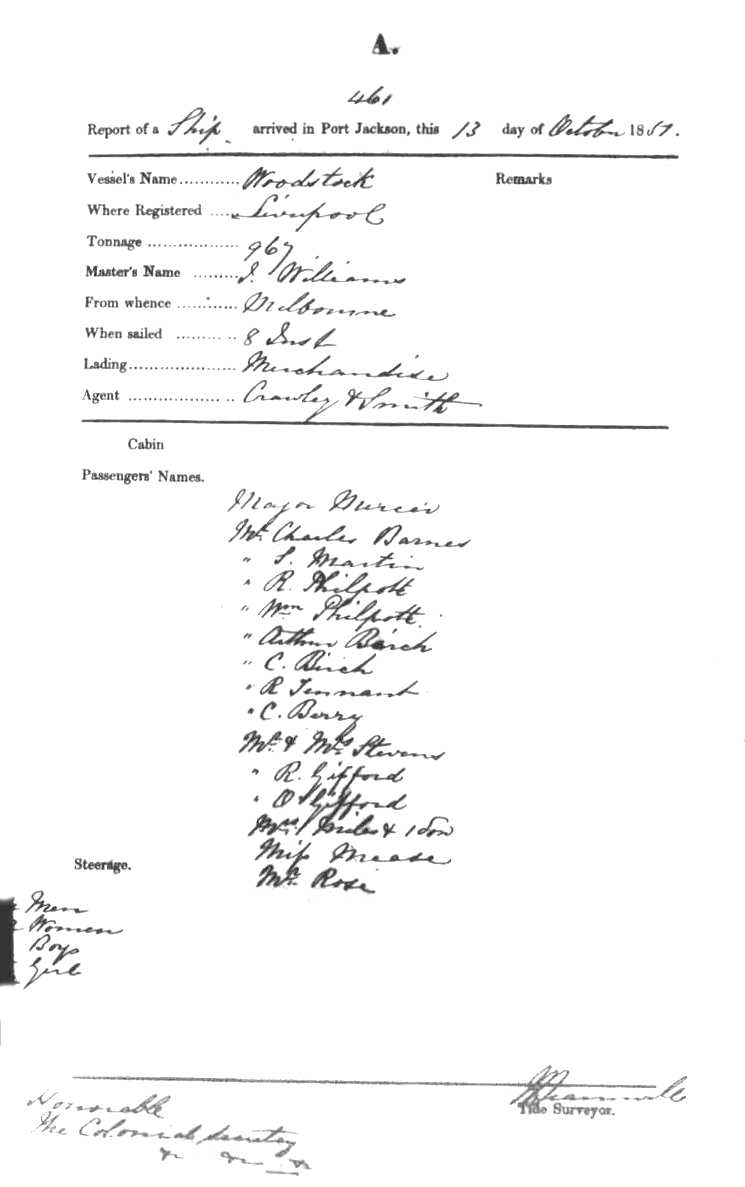 A.
461
Report of a Ship arrived in Port Jackson, this 13 day of October 1857.
Vessel's Name............ Woodstock Remarks
Where Registered .... Liverpool
Tonnage .................. 967
Master's Name ......... J. Williams
From whence ............ Melbourne
When sailed ........... 8 Inst
Lading...................... Merchandise
Agent .................. .. Crawley & Smith
Cabin
Passengers' Names.
Major Mercer
Mr. Charles Barnes
" S. Martin
" R. Philpott
" Wm Philpott
" Arthur Birch
" C. Birch
" R Tennant
" C. Berry
Mr. & Mrs Stevens
" R. Gifford
" O Gifford
Mrs Miles & 1 son
Miss Mease
Mr. Rose
Steerage.
Men
Women
Boys
Girls
Tide Surveyor.
Honorable
The Colonial Secretary
&c &c &c